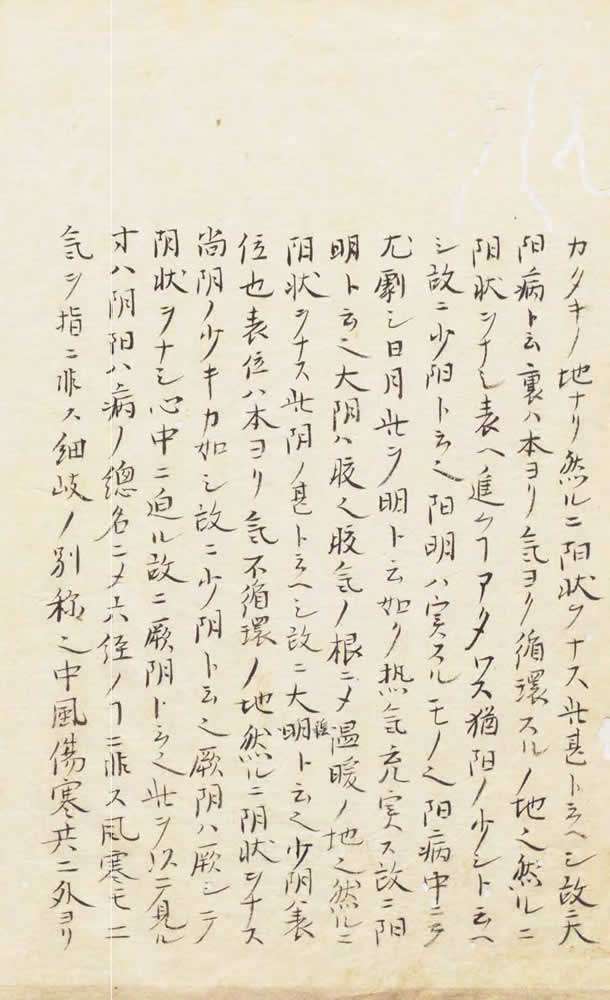 カタキノ地ナリ然ルニ阳状ヲナス此甚ト云ヘシ故ニ大
阳病ト云裏ハ本ヨリ氣ヨク循環スルノ地也然ルニ
阳状ヲナシ表ヘ進ムヿアタワス猶阳ノ少シト云ヘ
シ故ニ少阳ト云也阳明ハ実スルモノ也阳病中ニテ
尤劇シ日月此ヲ明ト云如ク热氣充実ス故ニ阳
明ト云也大阴ハ腹也腹氣ノ根ニメ温暖ノ地也然ルニ
阳状ヲナス此阴ノ甚ト云ヘシ故ニ大明陰ト云也少阴表
位也表位ハ本ヨリ氣不循環ノ地然ルニ阴状ヲナス
尚阴ノ少キカ如シ故ニ少阴ト云也厥阴ハ厥シテ
阴状ヲナシ心中ニ迫ル故ニ厥阴ト云也此ヲ以テ見ル
寸ハ阴阳ハ病ノ總名ニメ六経ノヿニ非ス風寒モ二
氣ヲ指ニ非ス細岐ノ別称也中風傷寒共ニ外ヨリ